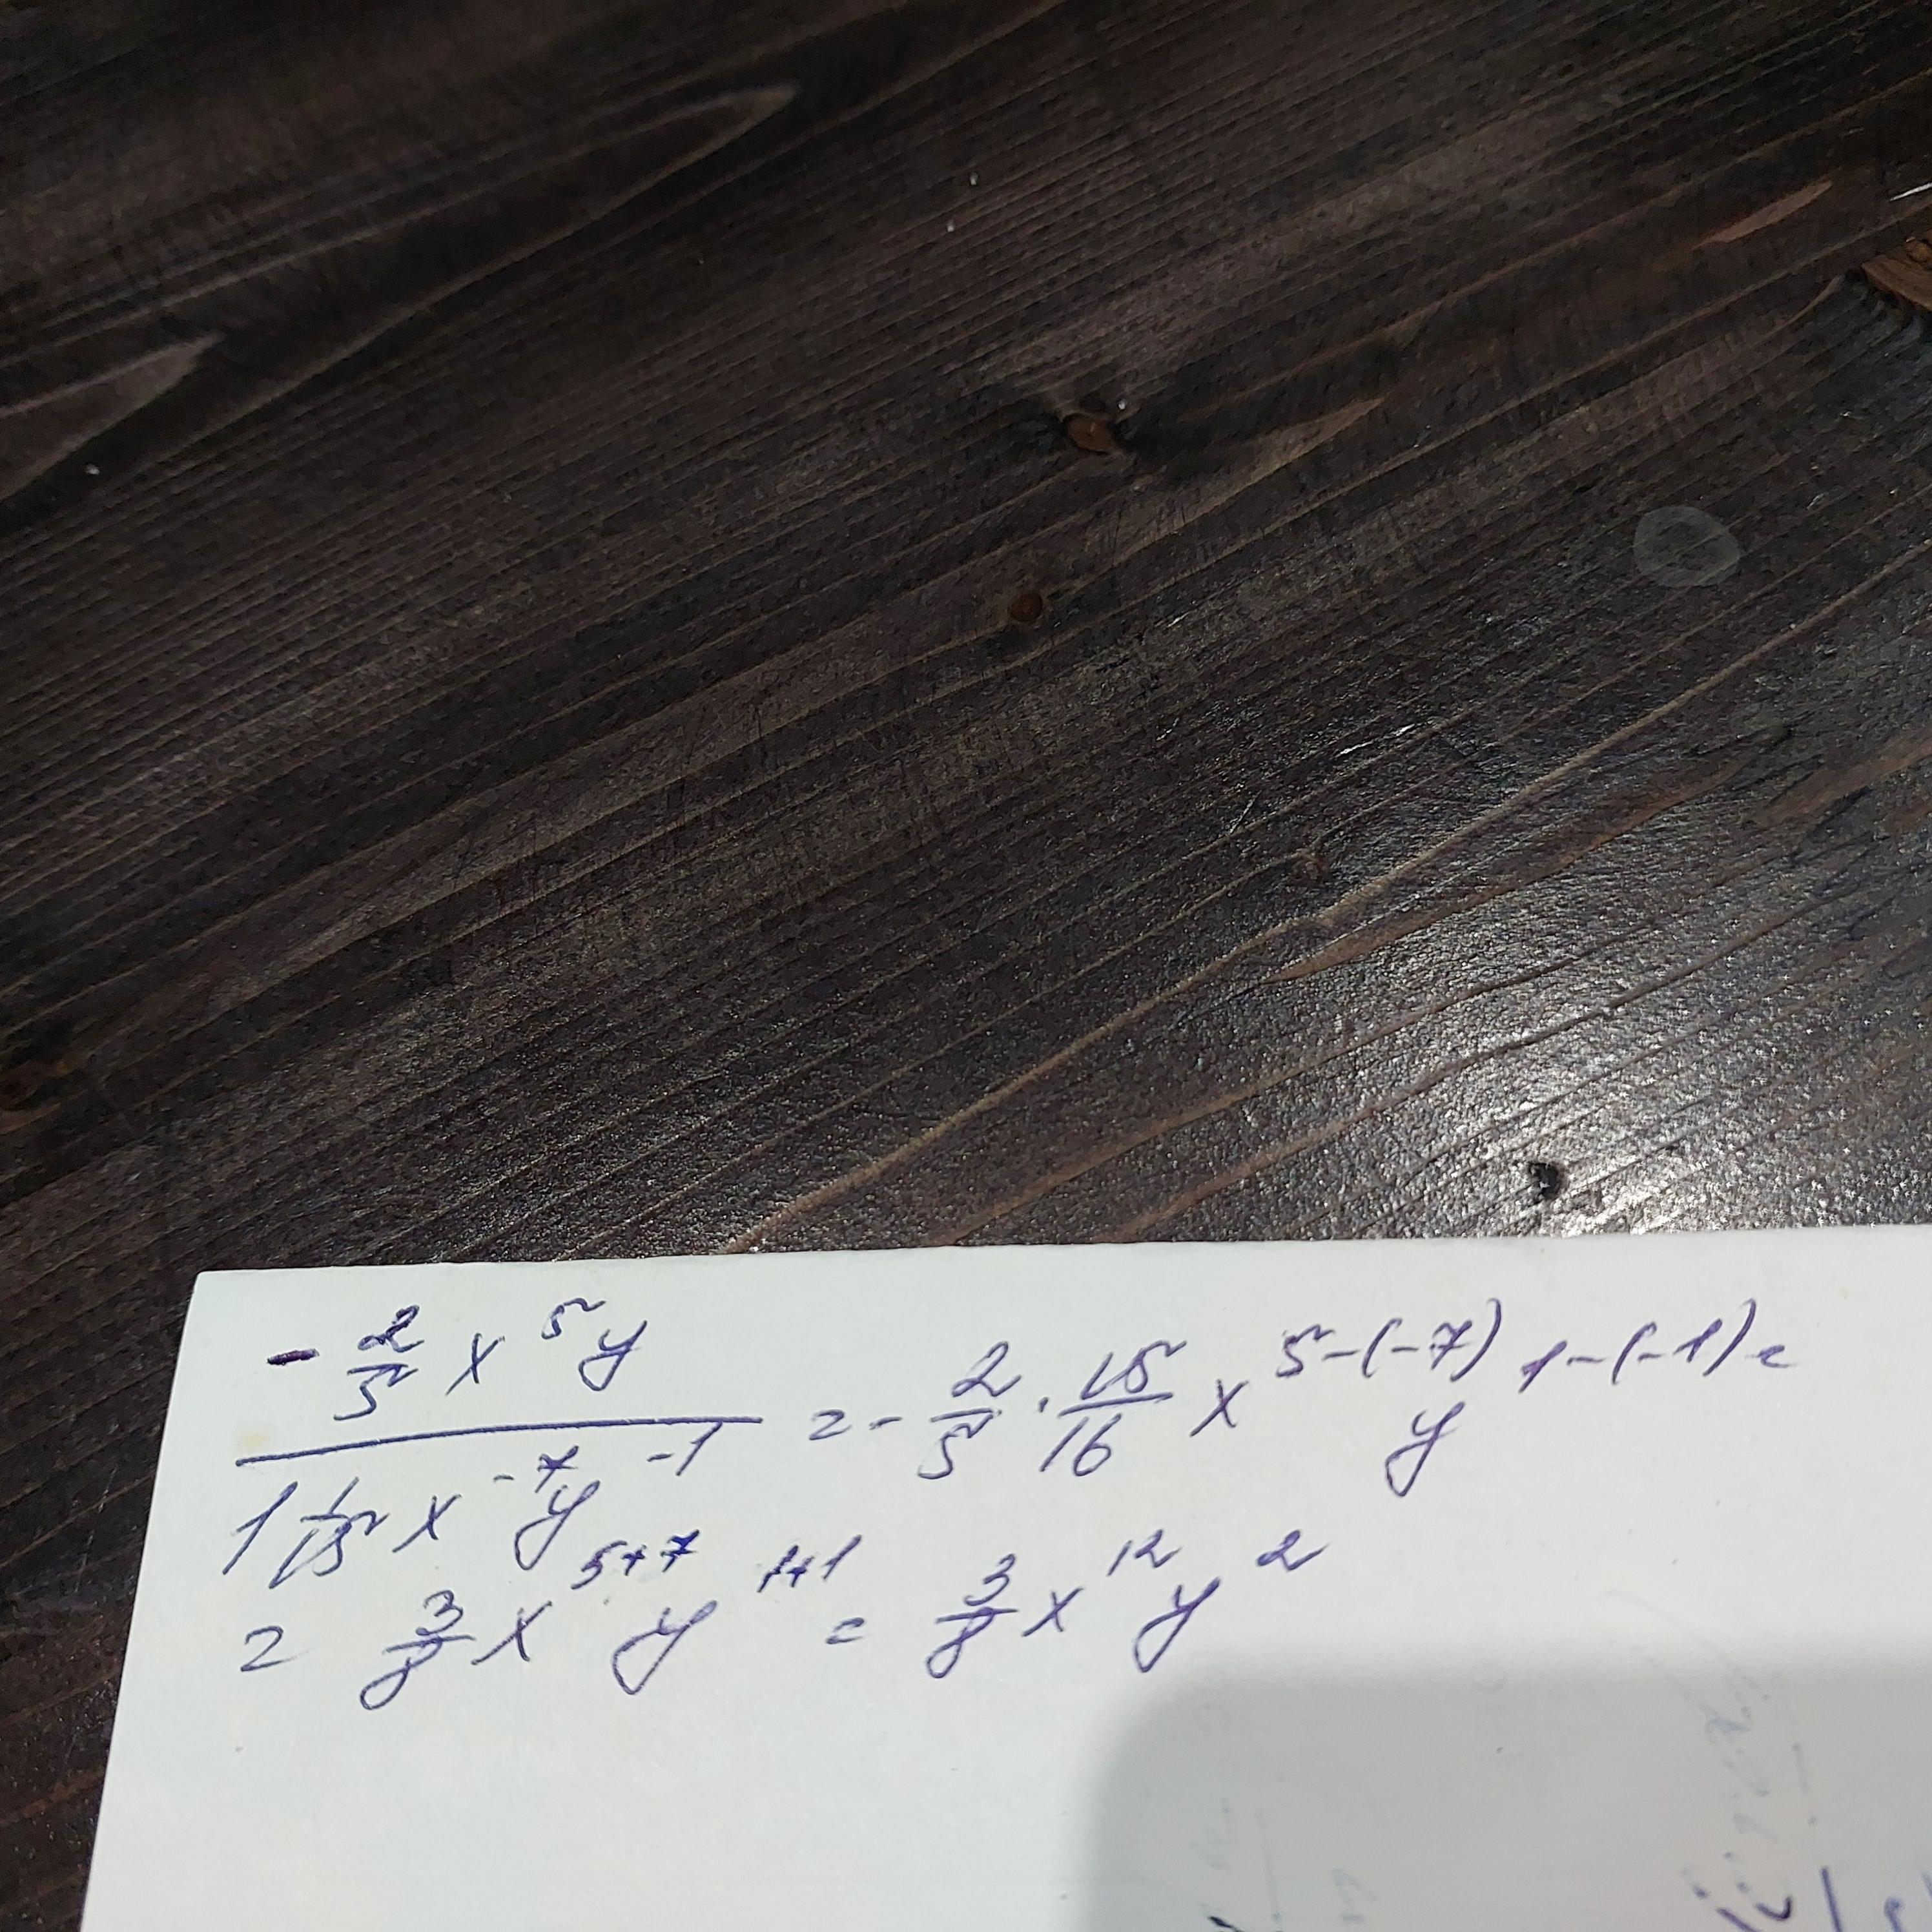 -2/5 x^5 y / 1 1/15 x^-7 y^-1 = - 2/5 · 15/16 x^5-(-7) y^1-(-1) =
= 3/8 x^5+7 y^1+1 = 3/8 x^12 y^2